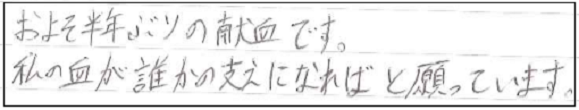 およそ半年ぶりの献血です。
私の血が誰かの支えになればと願っています。